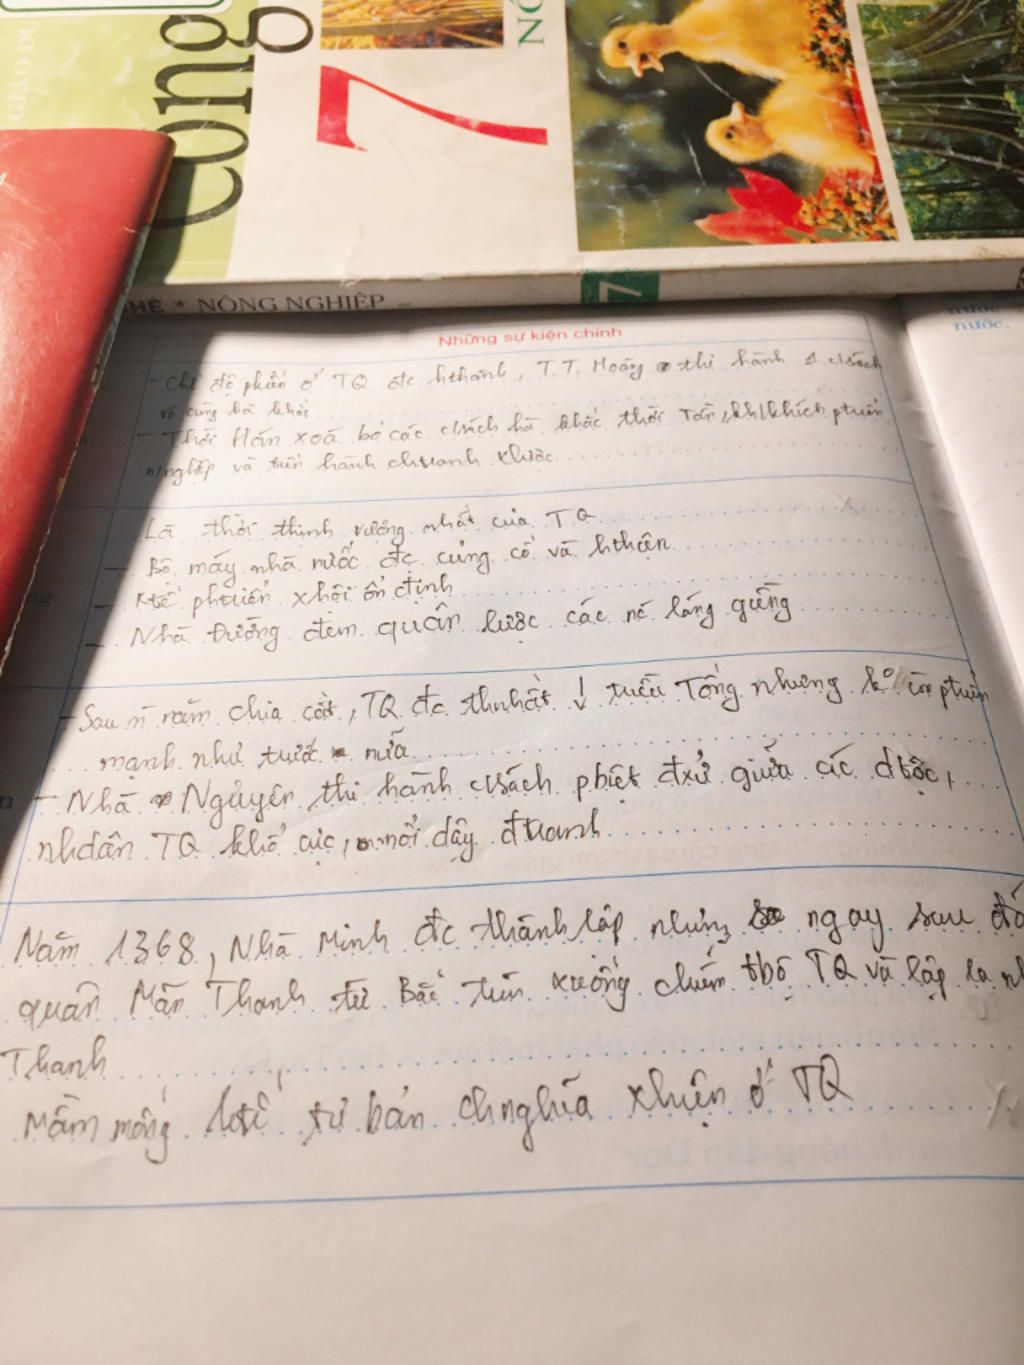 GIÁO DỤ
Công
7
NÔ
NGHỆ * NÔNG NGHIỆP –
7
Những sự kiện chính
nước.
- Chế độ phkiến ở TQ đc hthành, T.T. Hoàng thi hành 1 c/sách
vô cùng hà khắc
- Thời Hán xoá bỏ các c/sách hà khắc thời Tần, kh/khích ptriển
n/nghiệp và tiến hành chtranh xlược
Là thời thịnh vượng nhất của TQ
- Bộ máy nhà nước đc củng cố và hthiện
- Ktế phtriển xhội ổn định
- Nhà Đường đem quân lược các nc láng giềng
- Sau n năm chia cắt, TQ đc thnhất ↓ triều Tống nhưng ko còn ptriển
mạnh như trước nữa
- Nhà Nguyên thi hành c/sách phbiệt đxử giữa các dtộc,
nhdân TQ khổ cực, nổi dậy đtranh
Năm 1368, Nhà Minh đc thành lập nhưng ngay sau đó
quân Mãn Thanh từ Bắc tiến xuống chiếm tbộ TQ và lập ra nh
Thanh
Mầm mống ktế tư bản chnghĩa xhiện ở TQ